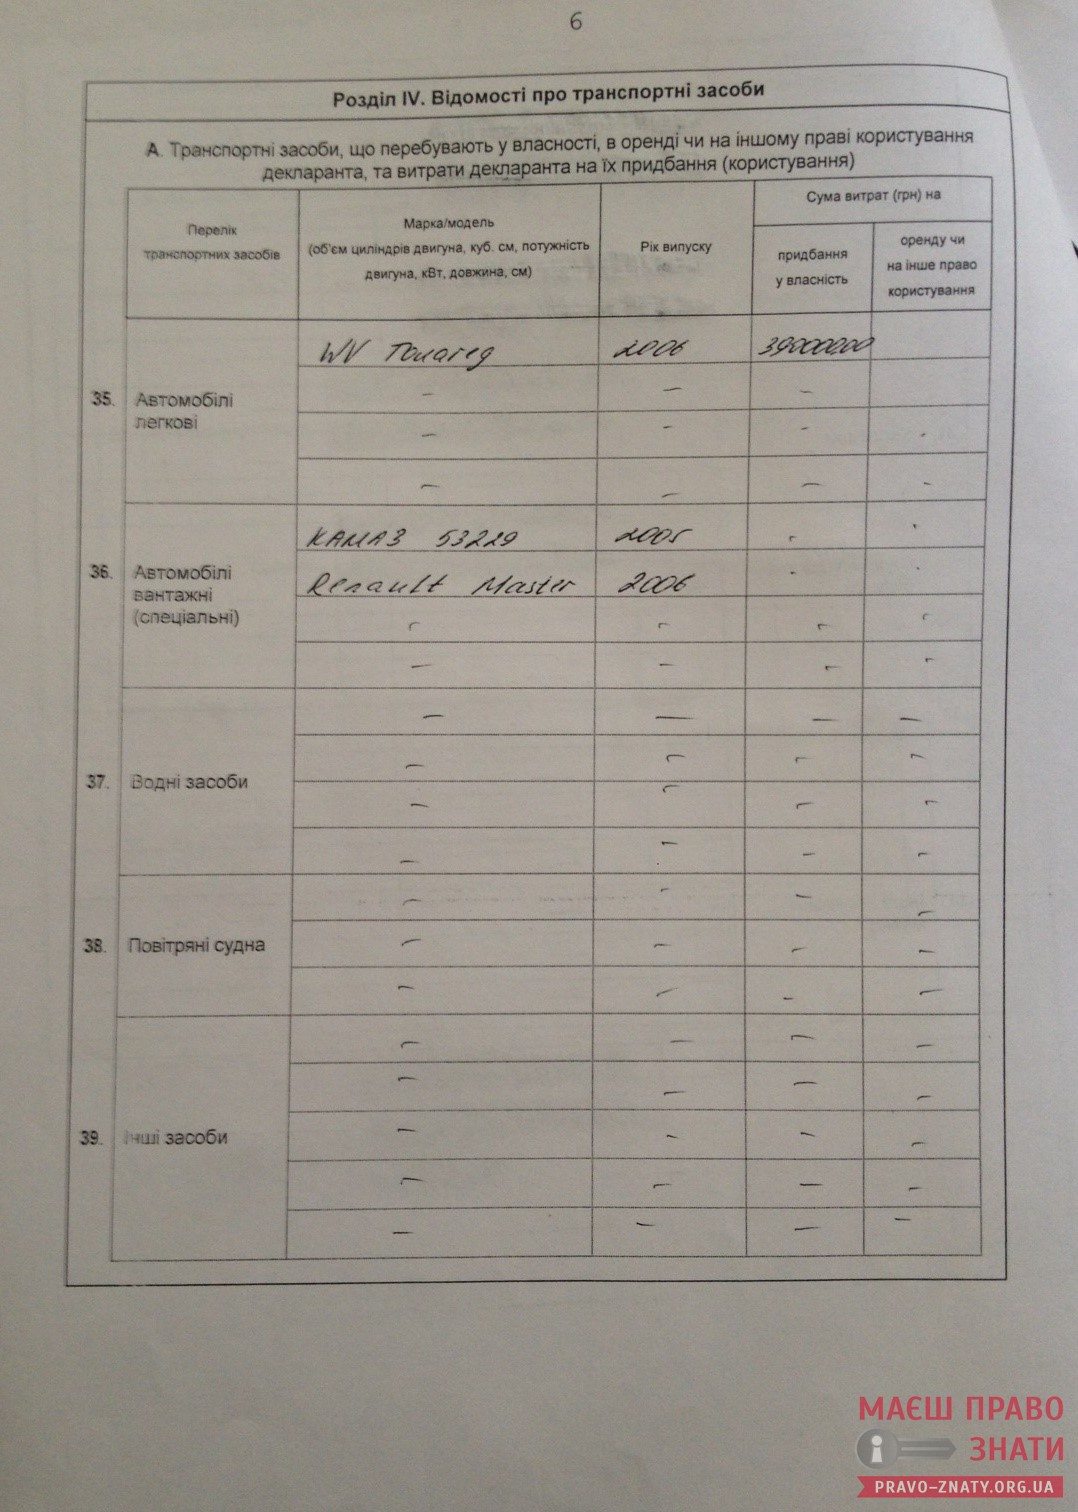 6
Розділ IV. Відомості про транспортні засоби
А. Транспортні засоби, що перебувають у власності, в оренді чи на іншому праві користування
декларанта, та витрати декларанта на їх придбання (користування)
Перелік
транспортних засобів
Марка/модель
(об'єм циліндрів двигуна, куб. см, потужність
двигуна, кВт, довжина, см)
Рік випуску
Сума витрат (грн) на
придбання
у власність
оренду чи
на інше право
користування
35. Автомобілі
легкові
WV Туарег 2006 39000000
–
–
–
36. Автомобілі
вантажні
(спеціальні)
КАМАЗ 53229 2005 -
Renault Master 2006 -
37. Водні засоби
38. Повітряні судна
39. Інші засоби
МАЄШ ПРАВО
ЗНАТИ
PRAVO-ZNATY.ORG.UA